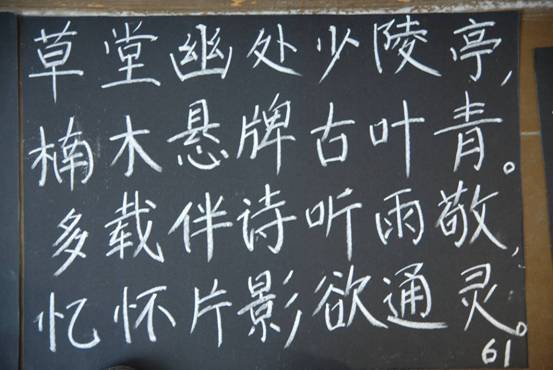 草堂幽处少陵亭，
楠木悬牌古叶青。
多载伴诗听雨敬，
忆怀片影欲通灵。
61